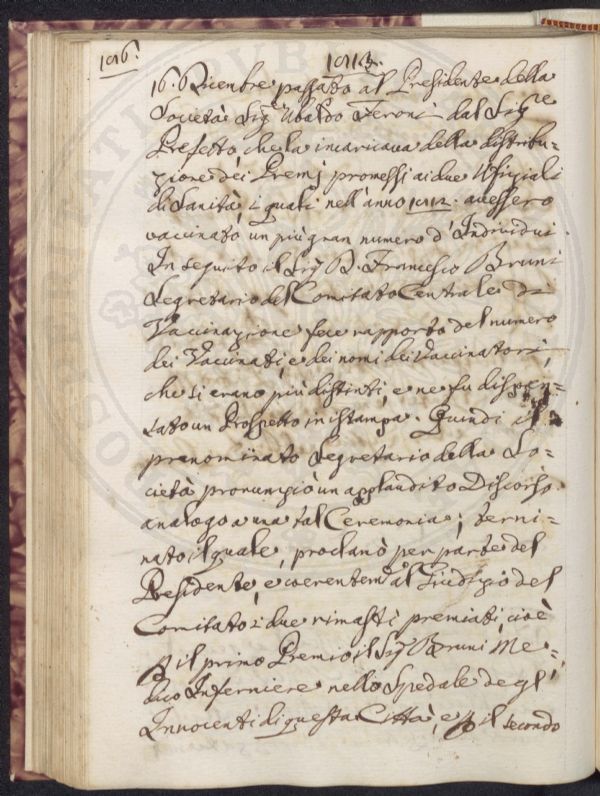 196.
1813.
16. Dicenbre passato al Presidente della
Società Sig.r Ubaldo Feroni dal Sig.re
Prefetto, che la incaricava della distribu=
zione dei Premj promessi ai due Ufiziali
di Sanità, i quali nell'anno 1812. avessero
vaccinato un più gran numero d'Individui.
In seguito il Sig.r D. Francesco Bruni
Segretario del Comitato Centrale di
Vaccinazione fece rapporto del numero
dei Vaccinati, e dei nomi dei Vaccinatori,
che si erano più distinti, e ne fu dispen=
sato un Prospetto in istampa. Quindi il
prenominato Segretario della So=
cietà pronunziò un applaudito Discorso
analogo a una tal Ceremonia; termi=
nato il quale, proclamò per parte del
Presidente, e coerentem.e al Giudizio del
Comitato i due rimasti premiati, cioè
p il primo Premio il Sig.r Bruni, Me=
dico Infermiere nello Spedale degl'
Innocenti di questa Città, e p il secondo